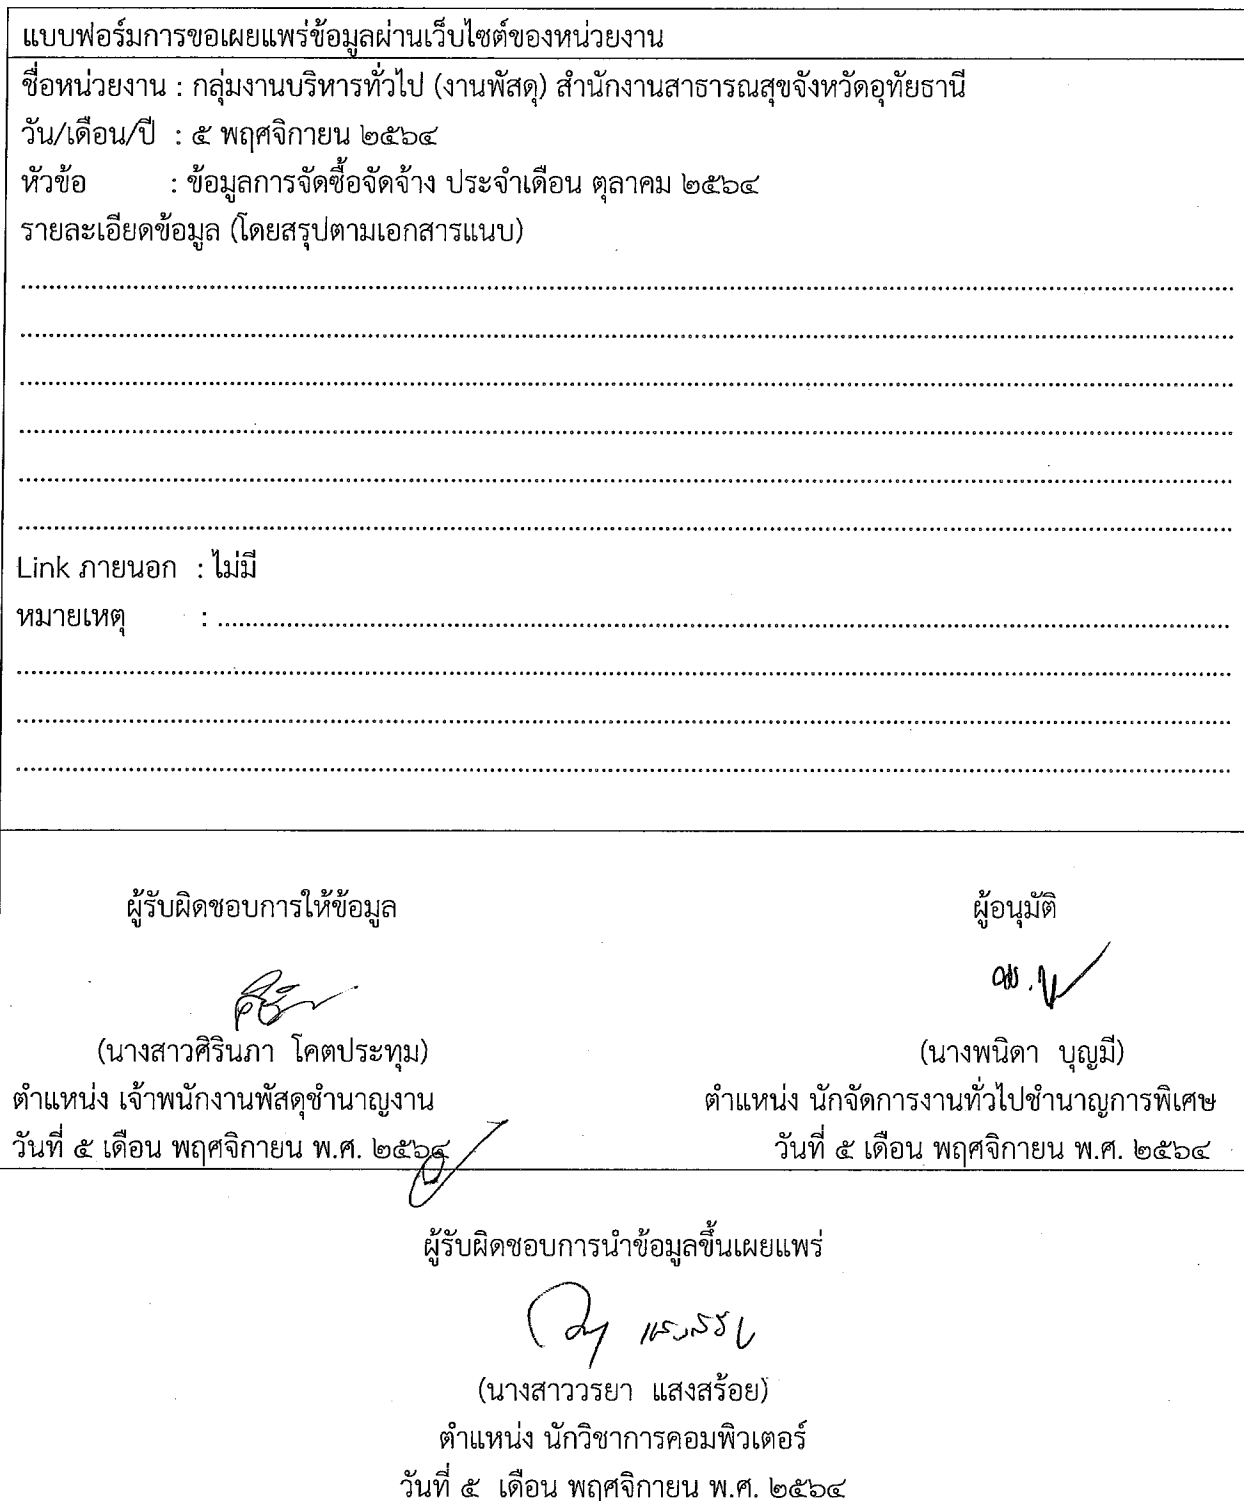 แบบฟอร์มการขอเผยแพร่ข้อมูลผ่านเว็บไซต์ของหน่วยงาน
ชื่อหน่วยงาน : กลุ่มงานบริหารทั่วไป (งานพัสดุ) สำนักงานสาธารณสุขจังหวัดอุทัยธานี
วัน/เดือน/ปี : ๕ พฤศจิกายน ๒๕๖๔
หัวข้อ : ข้อมูลการจัดซื้อจัดจ้าง ประจำเดือน ตุลาคม ๒๕๖๔
รายละเอียดข้อมูล (โดยสรุปตามเอกสารแนบ)
Link ภายนอก : ไม่มี
หมายเหตุ :
ผู้รับผิดชอบการให้ข้อมูล ผู้อนุมัติ
(นางสาวศิรินภา โคตประทุม) (นางพนิดา บุญมี)
ตำแหน่ง เจ้าพนักงานพัสดุชำนาญงาน ตำแหน่ง นักจัดการงานทั่วไปชำนาญการพิเศษ
วันที่ ๕ เดือน พฤศจิกายน พ.ศ. ๒๕๖๔ วันที่ ๕ เดือน พฤศจิกายน พ.ศ. ๒๕๖๔
ผู้รับผิดชอบการนำข้อมูลขึ้นเผยแพร่
(นางสาววรยา แสงสร้อย)
ตำแหน่ง นักวิชาการคอมพิวเตอร์
วันที่ ๕ เดือน พฤศจิกายน พ.ศ. ๒๕๖๔